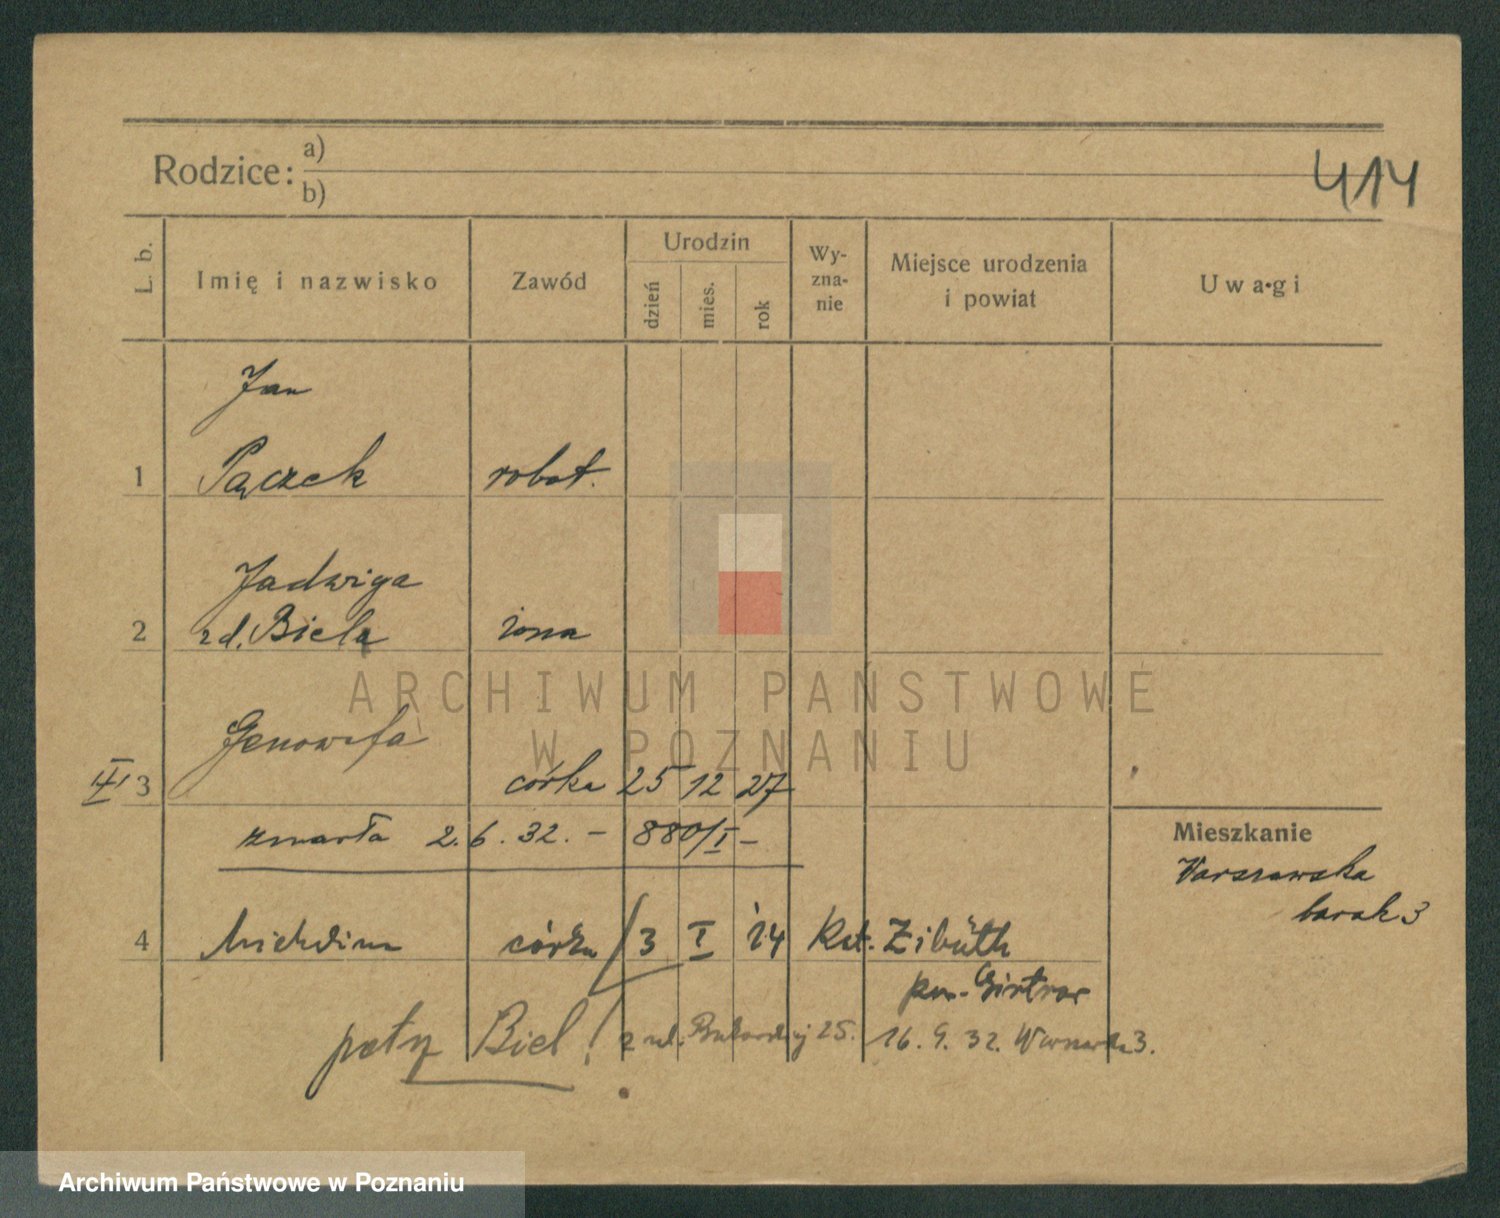 Rodzice: a)
b)
414
L. b.
Imię i nazwisko
Zawód
Urodzin
dzień
mies.
rok
Wy-
zna-
nie
Miejsce urodzenia
i powiat
Uwagi
Jan
1 Pączek robot.
Jadwiga
2 zd. Biela żona
Genowefa
3 córka 25 12 27
zmarła 2. 6. 32. – 880/I –
Mieszkanie
Warszawska
barak 3
4 córka 3 I 14 Kat.
Biel! z ul. 25. 16. 9. 32. 3.
ARCHIWUM PAŃSTWOWE
W POZNANIU
Archiwum Państwowe w Poznaniu